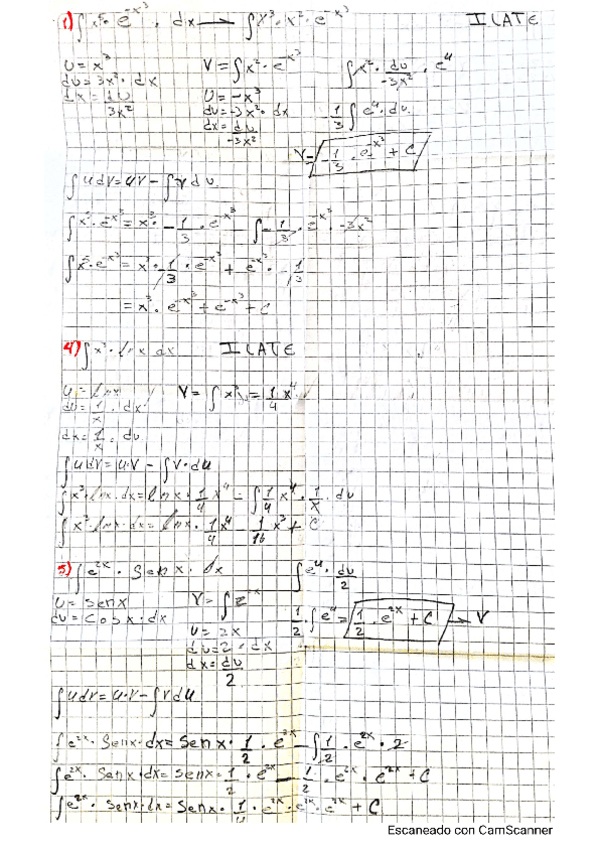 1) ∫ x⁵ · e^-x³ · dx → ∫ x³ · x² · e^-x³ ILATE
u = x³ V = ∫ x² · e^-x³ ∫ x² · du/-3x² · e^u
du = 3x² · dx u = -x³
dx = du/3x² du = -3x² · dx -1/3 ∫ e^u · du
dx = du/-3x²
V = -1/3 · e^-x³ + C
∫ u dv = uv - ∫ v du
∫ x⁵ · e^-x³ = x³ · -1/3 · e^-x³ - ∫ -1/3 · e^-x³ · -3x²
∫ x⁵ · e^-x³ = x³ · -1/3 · e^-x³ + e^-x³ · -1/3
= x³ · e^-x³ + e^-x³ + C
4) ∫ x³ · lnx dx ILATE
u = lnx V = ∫ x³ = 1/4 x⁴
du = 1/x · dx
dx = 1/x · du
∫ u dv = u·v - ∫ v · du
∫ x³ · lnx · dx = lnx · 1/4 x⁴ - ∫ 1/4 x⁴ · 1/x · du
∫ x³ · lnx · dx = lnx · 1/4 x⁴ - 1/16 x³ + C
5) ∫ e^2x · Sen x · dx ∫ e^u · du/2
u = senx V = ∫ z^2x
du = cosx · dx 1/2 · ∫ e^u = 1/2 · e^2x + C → V
u = 2x
du = 2 · dx
dx = du/2
∫ u dv = u·v - ∫ v du
∫ e^2x · Senx · dx = Sen x · 1/2 · e^2x - ∫ 1/2 · e^2x · 2
∫ e^2x · Senx · dx = senx · 1/2 · e^2x - 1/2 · e^2x · e^2x + C
∫ e^2x · Senx · dx = Senx · e^2x · e^2x · e^2x + C
Escaneado con CamScanner